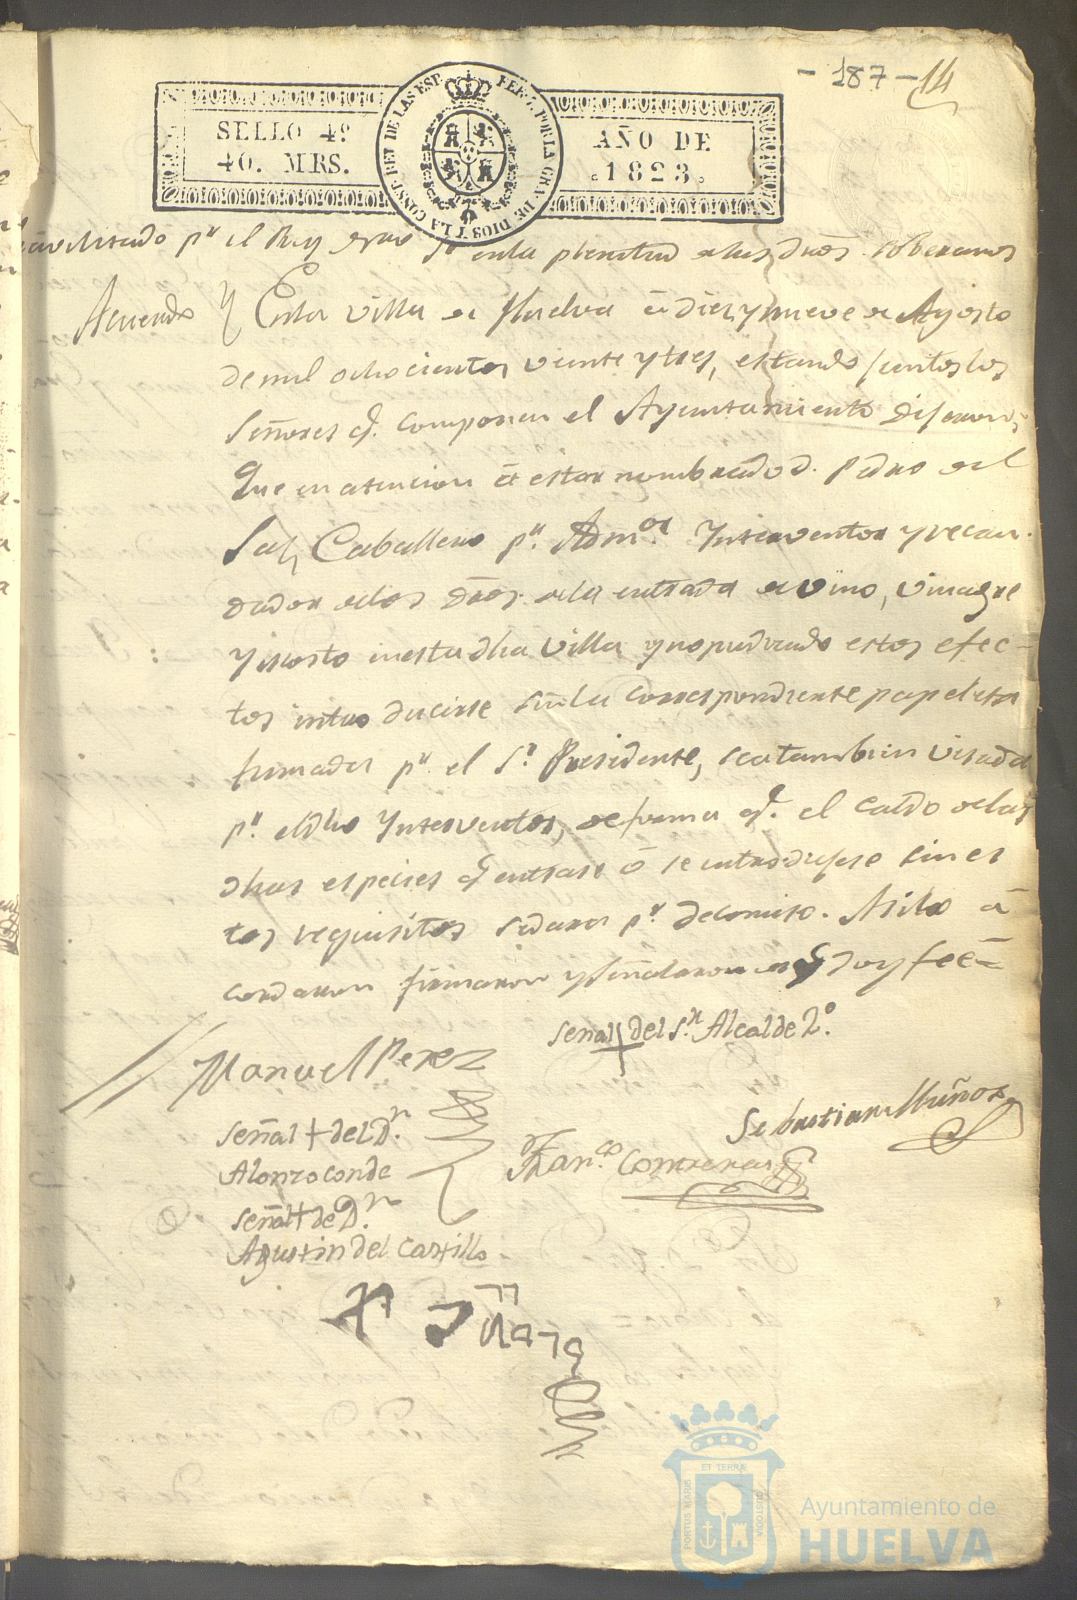 - 187 - 14
SELLO 4º
40. MRS.
FER. 7. POR LA GRA. DE DIOS Y LA CONST. REY DE LAS ESP.
AÑO DE
1823.
pr. el Rey en la plenitud de sus dros. soberanos
Acuerdo
Y En la villa de Huelva á diez y nueve de Agosto
de mil ochocientos veinte y tres, estando juntos los
Señores q. componen el Ayuntamiento dijeron:
Que en atencion á estar nombrado D. Pedro del
Sal, Caballero pr. Admor. Ynterventor y recau-
dador de los dros. de la entrada de vino, vinagre
y mosto en esta dha villa y no pudiendo estos efec-
tos introducirse sin la correspondiente papeleta
firmada pr. el Sr. Presidente, sea tambien visada
pr. el dho Ynterventor, de forma q. el caldo de las
dhas especies q entrase ó se introdujese sin es
tos requisitos se dara pr. decomiso. Asilo a
cordaron firmaron y señalaron de q doy fee=
Señal + del Sr. Alcalde 2º.
Manuel Perez
Sebastian Muñoz
Señal + del Dn.
Alonzo conde
Franco. Contreras
Señal + de Dn.
Agustin del Castillo
ET TERRÆ
PORTUS MARIS
CUSTODIA
Ayuntamiento de
HUELVA